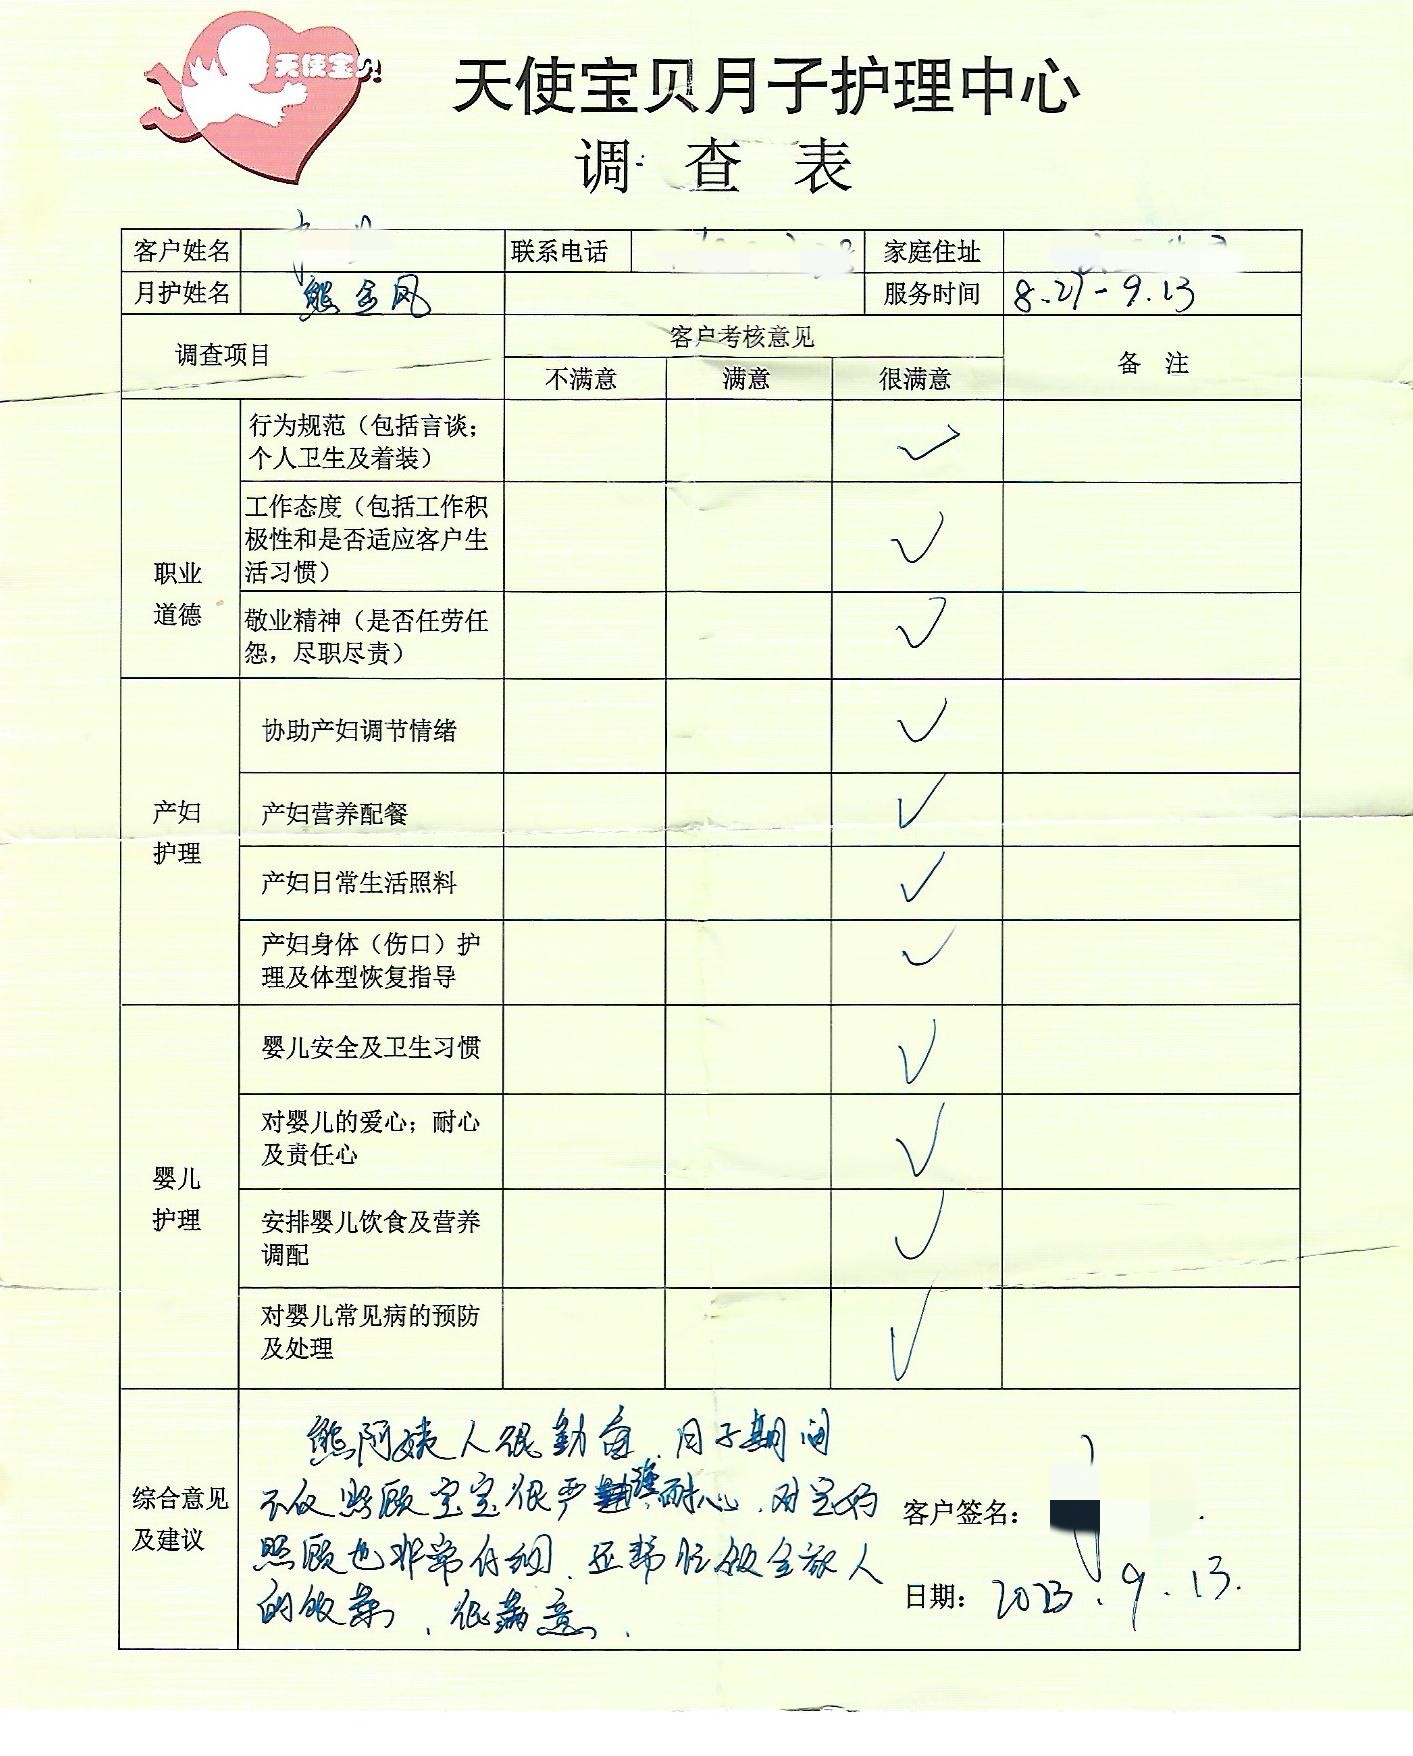 天使宝贝
天使宝贝月子护理中心
调查表
客户姓名 联系电话 家庭住址
月护姓名 熊金凤 服务时间 8.21-9.13
调查项目 客户考核意见 备 注
不满意 满意 很满意
职业
道德
行为规范（包括言谈；
个人卫生及着装）
✓
工作态度（包括工作积
极性和是否适应客户生
活习惯）
✓
敬业精神（是否任劳任
怨，尽职尽责）
✓
产妇
护理
协助产妇调节情绪 ✓
产妇营养配餐 ✓
产妇日常生活照料 ✓
产妇身体（伤口）护
理及体型恢复指导
✓
婴儿
护理
婴儿安全及卫生习惯 ✓
对婴儿的爱心；耐心
及责任心
✓
安排婴儿饮食及营养
调配
✓
对婴儿常见病的预防
及处理
✓
综合意见
及建议
熊阿姨人很勤奋、月子期间
不仅照顾宝宝很严谨、耐心、对宝妈
照顾也非常仔细、还帮忙做全家人
的饭菜、很满意、
客户签名：
日期：2023.9.13.